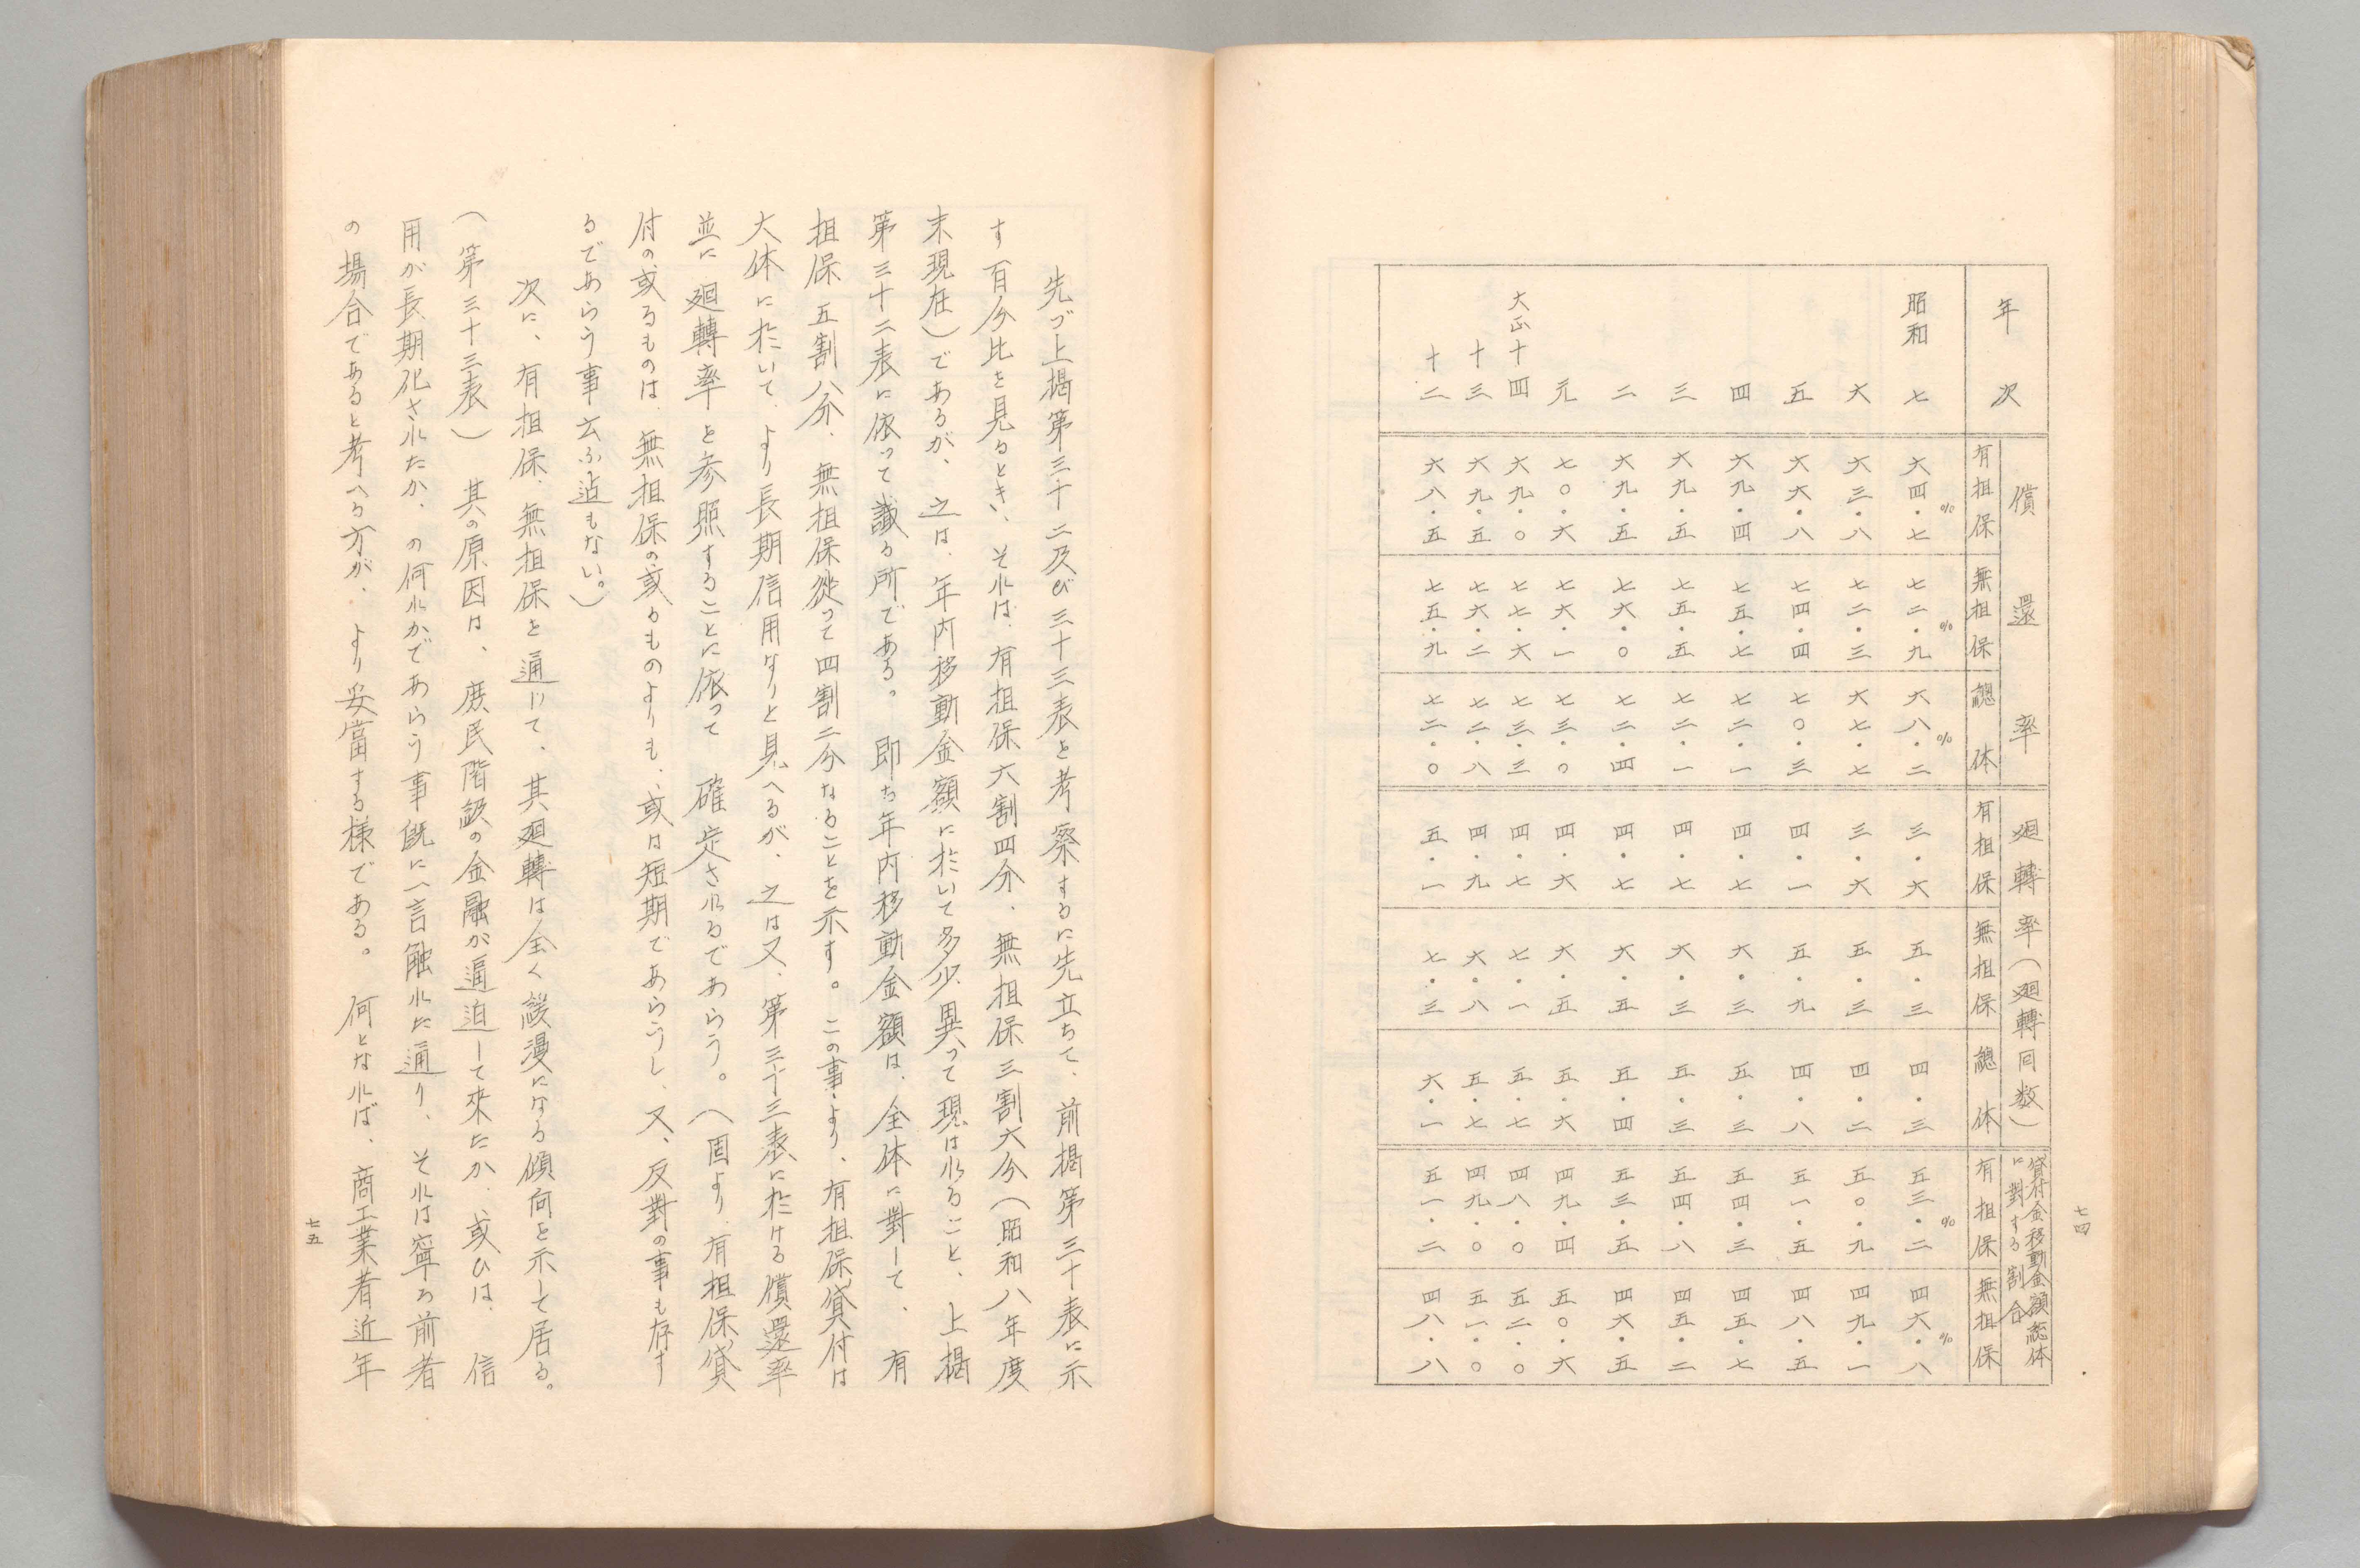 七四
年次 償還率 廻轉率（廻轉回数） 貸付金移動金額総体に對する割合
有担保 無担保 總体 有担保 無担保 總体 有担保 無担保
昭和七 六四・七% 七二・九% 六八・二% 三・六 五・三 四・三 五三・二% 四六・八%
六 六三・八 七二・三 六七・七 三・六 五・三 四・二 五〇・九 四九・一
五 六六・八 七四・四 七〇・三 四・一 五・九 四・八 五一・五 四八・五
四 六九・四 七五・七 七二・一 四・七 六・三 五・三 五四・三 四五・七
三 六九・五 七五・五 七二・一 四・七 六・三 五・三 五四・八 四五・二
二 六九・五 七六・〇 七二・四 四・七 六・五 五・四 五三・五 四六・五
元 七〇・六 七六・一 七三・〇 四・六 六・五 五・六 四九・四 五〇・六
大正十四 六九・〇 七七・六 七三・三 四・七 七・一 五・七 四八・〇 五二・〇
十三 六九・五 七六・二 七二・八 四・九 六・八 五・七 四九・〇 五一・〇
十二 六八・五 七五・九 七二・〇 五・一 七・三 六・一 五一・二 四八・八
先づ上掲第三十二及び三十三表を考察するに先立ちて、前掲第三十表に示
す百分比を見るとき、それは、有担保六割四分、無担保三割六分（昭和八年度
末現在）であるが、之は、年内移動金額に於いて多少異って現はれること、上掲
第三十二表に依って識る所である。即ち年内移動金額は、全体に對して、有
担保五割八分、無担保従って四割二分なることを示す。この事より、有担保貸付は
大体に於いて、より長期信用なりと見へるが、之は又、第三十三表に於ける償還率
並に廻轉率を参照することに依って確定されるであらう。（固より、有担保貸
付の或るものは、無担保の或るものよりも、或は短期であらうし、又、反對の事も存す
るであらう事云ふ迠もない。）
次に、有担保、無担保を通じて、其廻轉は全く緩漫になる傾向を示して居る。
（第三十三表）其の原因は、庶民階級の金融が逼迫して来たか、或ひは、信
用が長期化されたか、の何れかであらう事既に一言触れた通り、それは寧ろ前者
の場合であると考へる方が、より妥當する様である。何となれば、商工業者近年
七五